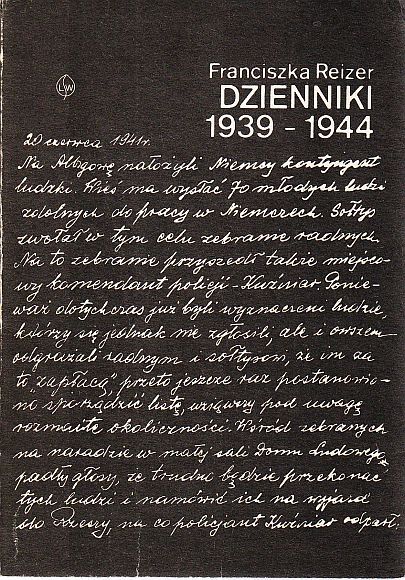 LSW
Franciszka Reizer
DZIENNIKI
1939 - 1944
20 czerwca 1941r.
Na Albigowę nałożyli Niemcy kontyngent
ludzki. Wieś ma wysłać 70 młodych ludzi
zdolnych do pracy w Niemczech. Sołtys
zwołał w tym celu zebranie radnych.
Na to zebranie przyszedł także miejsco-
wy komendant policji - Kuźniar. Ponie-
waż dotychczas już byli wyznaczeni ludzie,
którzy się jednak nie zgłosili, ale i owszem
odgrażali radnym i sołtysowi, że im za
to "zapłacą" przeto jeszcze raz postanowio-
no sporządzić listę, wziąwszy pod uwagę
rozmaite okoliczności. Wśród zebranych
na naradzie w małej sali Domu Ludowego,
padły głosy, że trudno będzie przekonać
tych ludzi i namówić ich na wyjazd
do Rzeszy, na co policjant Kuźniar odparł: